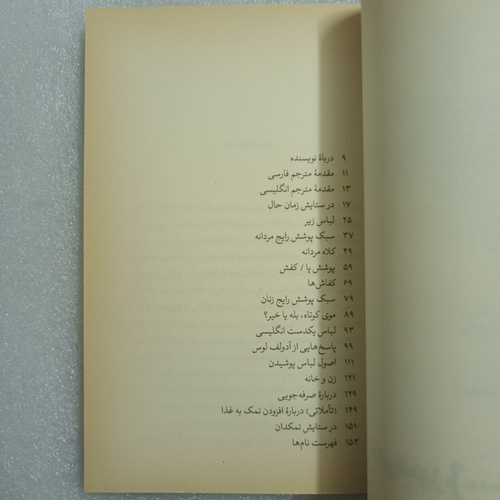 ۹ دربارهٔ نویسنده
۱۱ مقدمهٔ مترجم فارسی
۱۳ مقدمهٔ مترجم انگلیسی
۱۷ در ستایش زمان حال
۲۵ لباس زیر
۳۷ سبک پوشش رایج مردانه
۴۹ کلاه مردانه
۵۹ پوشش پا / کفش
۶۹ کفاش‌ها
۷۹ سبک پوشش رایج زنان
۸۹ موی کوتاه، بله یا خیر؟
۹۳ لباس یکدست انگلیسی
۹۹ پاسخ‌هایی از آدولف لوس
۱۱۱ اصول لباس پوشیدن
۱۲۱ زن و خانه
۱۲۹ دربارهٔ صرفه‌جویی
۱۴۹ (تأملاتی) دربارهٔ افزودن نمک به غذا
۱۵۱ در ستایش نمکدان
۱۵۳ فهرست نام‌ها